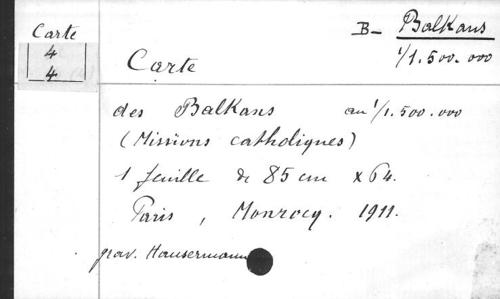 Carte
4
4
B- Balkans
1/1.500.000
Carte
des Balkans au 1/1.500.000
(Missions catholiques)
1 feuille de 85 cm x 64.
Paris, Monrocq. 1911.
grav. Hausermann